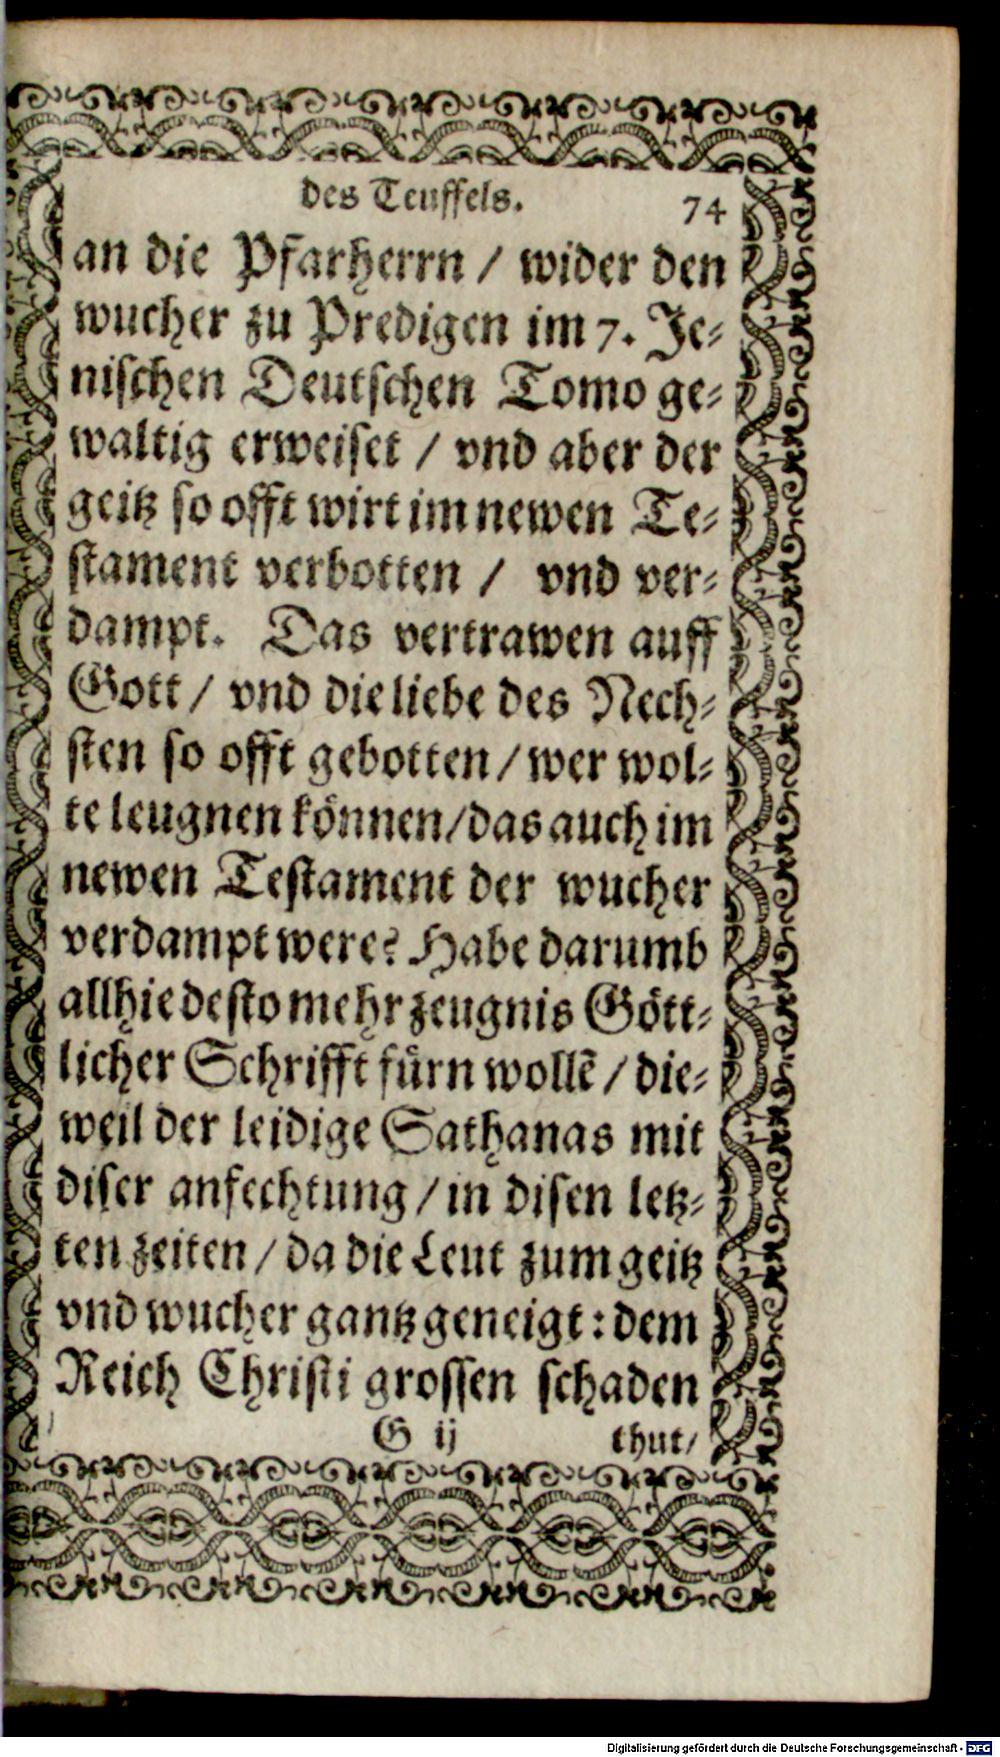 des Teuffels. 74
an die Pfarherrn / wider den
wucher zu Predigen im 7. Je⸗
nischen Deutschen Tomo ge⸗
waltig erweiset / vnd aber der
geitz so offt wirt im newen Te⸗
stament verbotten / vnd ver⸗
dampt. Das vertrawen auff
Gott / vnd die liebe des Nech⸗
sten so offt gebotten / wer wol⸗
te leugnen können / das auch im
newen Testament der wucher
verdampt were? Habe darumb
allhie desto mehr zeugnis Gött⸗
licher Schrifft fürn wollē / die⸗
weil der leidige Sathanas mit
diser anfechtung / in disen letz⸗
ten zeiten / da die Leut zum geitz
vnd wucher gantz geneigt: dem
Reich Christi grossen schaden
G ij thut /
Digitalisierung gefördert durch die Deutsche Forschungsgemeinschaft - DFG